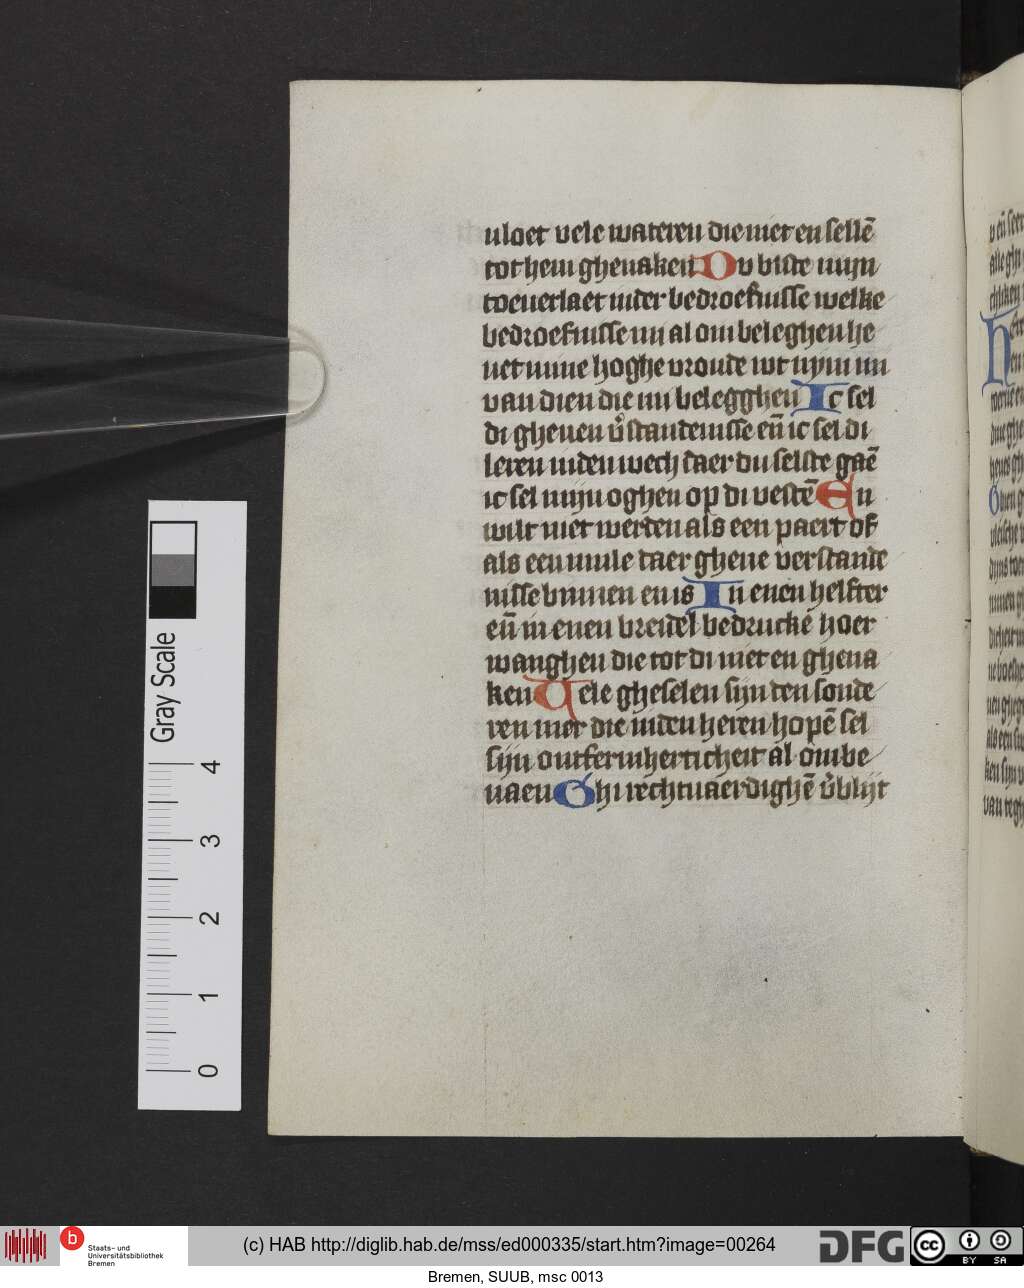 vloet vele wateren die niet en sellē
tot hem ghenaken Du biste mijn
toeuerlaet inder bedroefnisse welke
bedroefnisse mi al om beleghen he
uet mine hoghe vroude wt nym mi
van dien die mi belegghen Ic sel
di gheuen v̄standenisse eñ ic sel di
leren inden wech daer du selste gaē
ic sel mijn oghen op di vestē En
wilt niet werden als een paert of
als een mule daer ghene verstande
nisse binnen en is In enen helfter
eñ in enen breidel bedrucke hoer
wanghen die tot di niet en ghena
ken Uele gheselen sijn den sonde
ren mer die inden heren hopē sel
sijn ontfermherticheit al ombe
uaen Ghi rechtuaerdighē v̄blijt
Gray Scale
4
3
2
1
0
b
Staats- und
Universitätsbibliothek
Bremen
(c) HAB http://diglib.hab.de/mss/ed000335/start.htm?image=00264
DFG
cc
BY SA
Bremen, SUUB, msc 0013